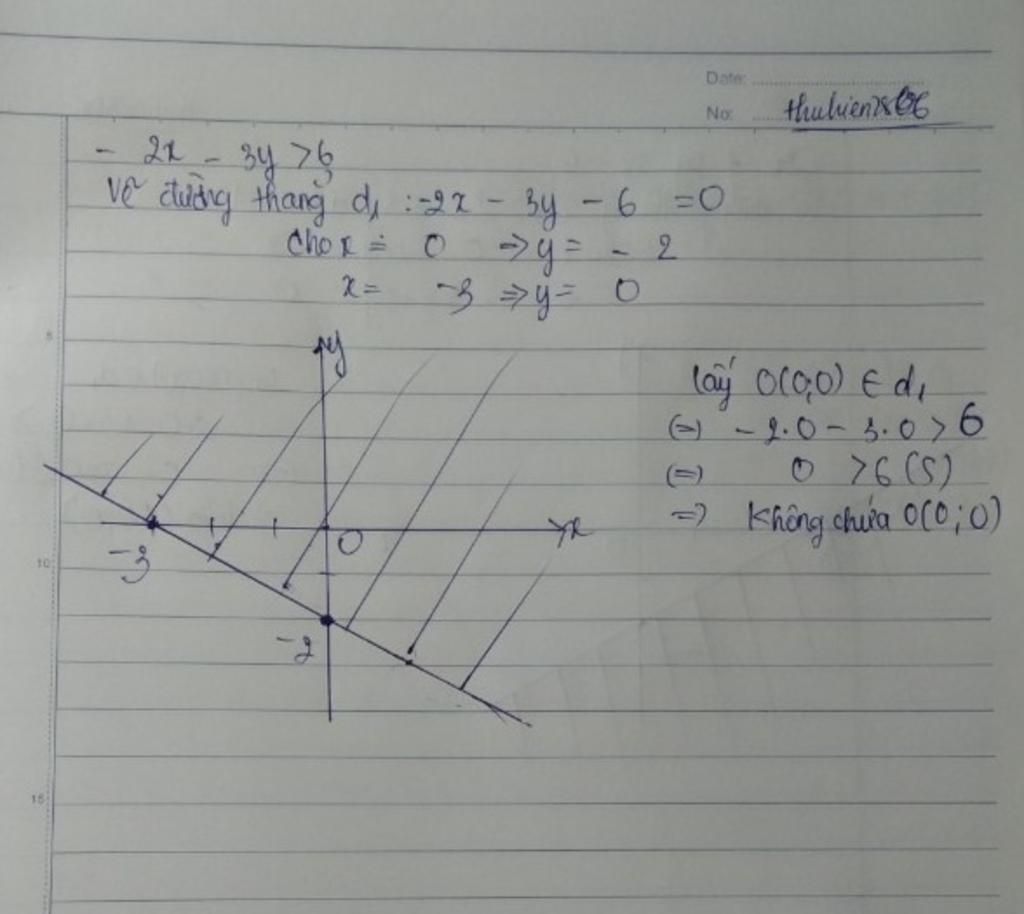 Date:
No: thuhien
- 2x - 3y > 6
Vẽ đường thẳng d₁ : -2x - 3y - 6 = 0
Cho x = 0 => y = - 2
x = -3 => y = 0
5
y
lấy O(0;0) ∈ d₁
(=) - 2.0 - 3.0 > 6
(=) 0 > 6 (S)
=> Không chứa O(0;0)
x
O
-3
10
-2
15